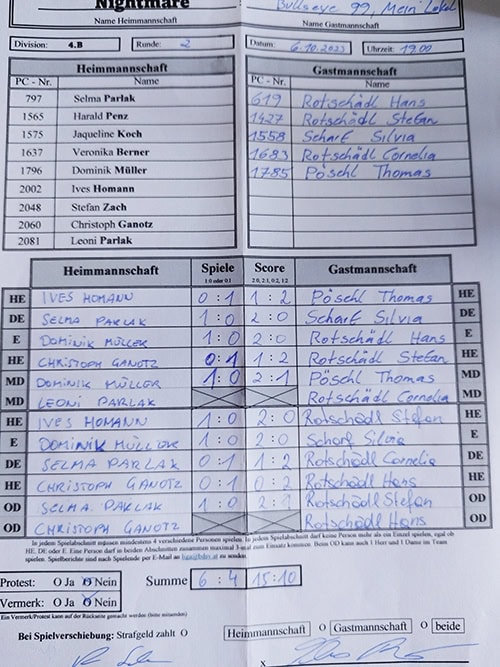 Nightmare Bullseye 99, Mein Lokal
Name Heimmannschaft Name Gastmannschaft
Division: 4.B Runde: 2 Datum: 6.10.2023 Uhrzeit: 19.00
Heimmannschaft Gastmannschaft
PC - Nr. Name PC - Nr. Name
797 Selma Parlak 619 Rotschädl Hans
1565 Harald Penz 1427 Rotschädl Stefan
1575 Jaqueline Koch 1558 Scharf Silvia
1637 Veronika Berner 1683 Rotschädl Cornelia
1796 Dominik Müller 1785 Pöschl Thomas
2002 Ives Homann
2048 Stefan Zach
2060 Christoph Ganotz
2081 Leoni Parlak
Heimmannschaft Spiele 1:0 oder 0:1 Score 2:0, 2:1, 0:2, 1:2 Gastmannschaft
HE IVES HOMANN 0:1 1:2 Pöschl Thomas HE
DE SELMA PARLAK 1:0 2:0 Scharf Silvia DE
E DOMINIK MÜLLER 1:0 2:0 Rotschädl Hans E
HE CHRISTOPH GANOTZ 0:1 1:2 Rotschädl Stefan HE
MD DOMINIK MÜLLER 1:0 2:1 Pöschl Thomas MD
MD LEONI PARLAK Rotschädl Cornelia MD
HE IVES HOMANN 1:0 2:0 Rotschädl Stefan HE
E DOMINIK MÜLLER 1:0 2:0 Scharf Silvia E
DE SELMA PARLAK 0:1 1:2 Rotschädl Cornelia DE
HE CHRISTOPH GANOTZ 0:1 0:2 Rotschädl Hans HE
OD SELMA PARLAK 1:0 2: Rotschädl Stefan OD
OD CHRISTOPH GANOTZ Rotschädl Hans OD
In jedem Spielabschnitt müssen mindestens 4 verschiedene Personen spielen. In jedem Spielabschnitt darf keine Person mehr als ein Einzel spielen, egal ob
HE, DE oder E. Eine Person darf in beiden Abschnitten zusammen maximal 3-mal zum Einsatz kommen. Beim OD kann auch 1 Herr und 1 Dame im Team
spielen. Spielberichte sind nach Spielende per E-Mail an zu senden.
Protest: O Ja O Nein Summe 6:4 15:10
Vermerk: O Ja O Nein
Ein Vermerk/Protest kann auf der Rückseite gemacht werden (bitte mitsenden)
Bei Spielverschiebung: Strafgeld zahlt O Heimmannschaft O Gastmannschaft O beide
x